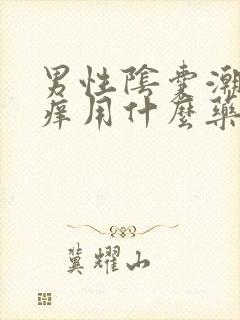 男性陰囊潮
癢用什麼藥
冀耀山